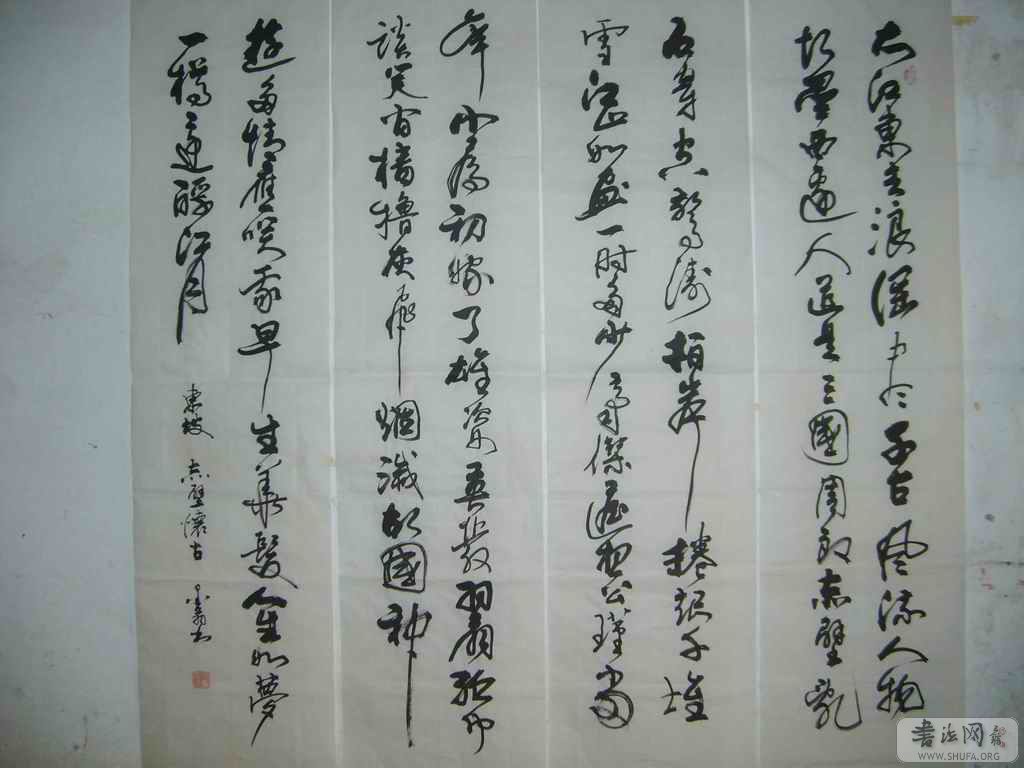 大江東去浪淘尽千古風流人物
故壘西邊人道是三國周郎赤壁亂
石穿空驚濤拍岸捲起千堆
雪江山如畫一時多少豪傑遥想公瑾當
年小喬初嫁了雄姿英發羽扇綸巾
談笑间檣櫓灰飛烟滅故國神
遊多情應笑我早生華髮人生如夢
一樽還酹江月
東坡 赤壁懷古
书法网
WWW.SHUFA.ORG